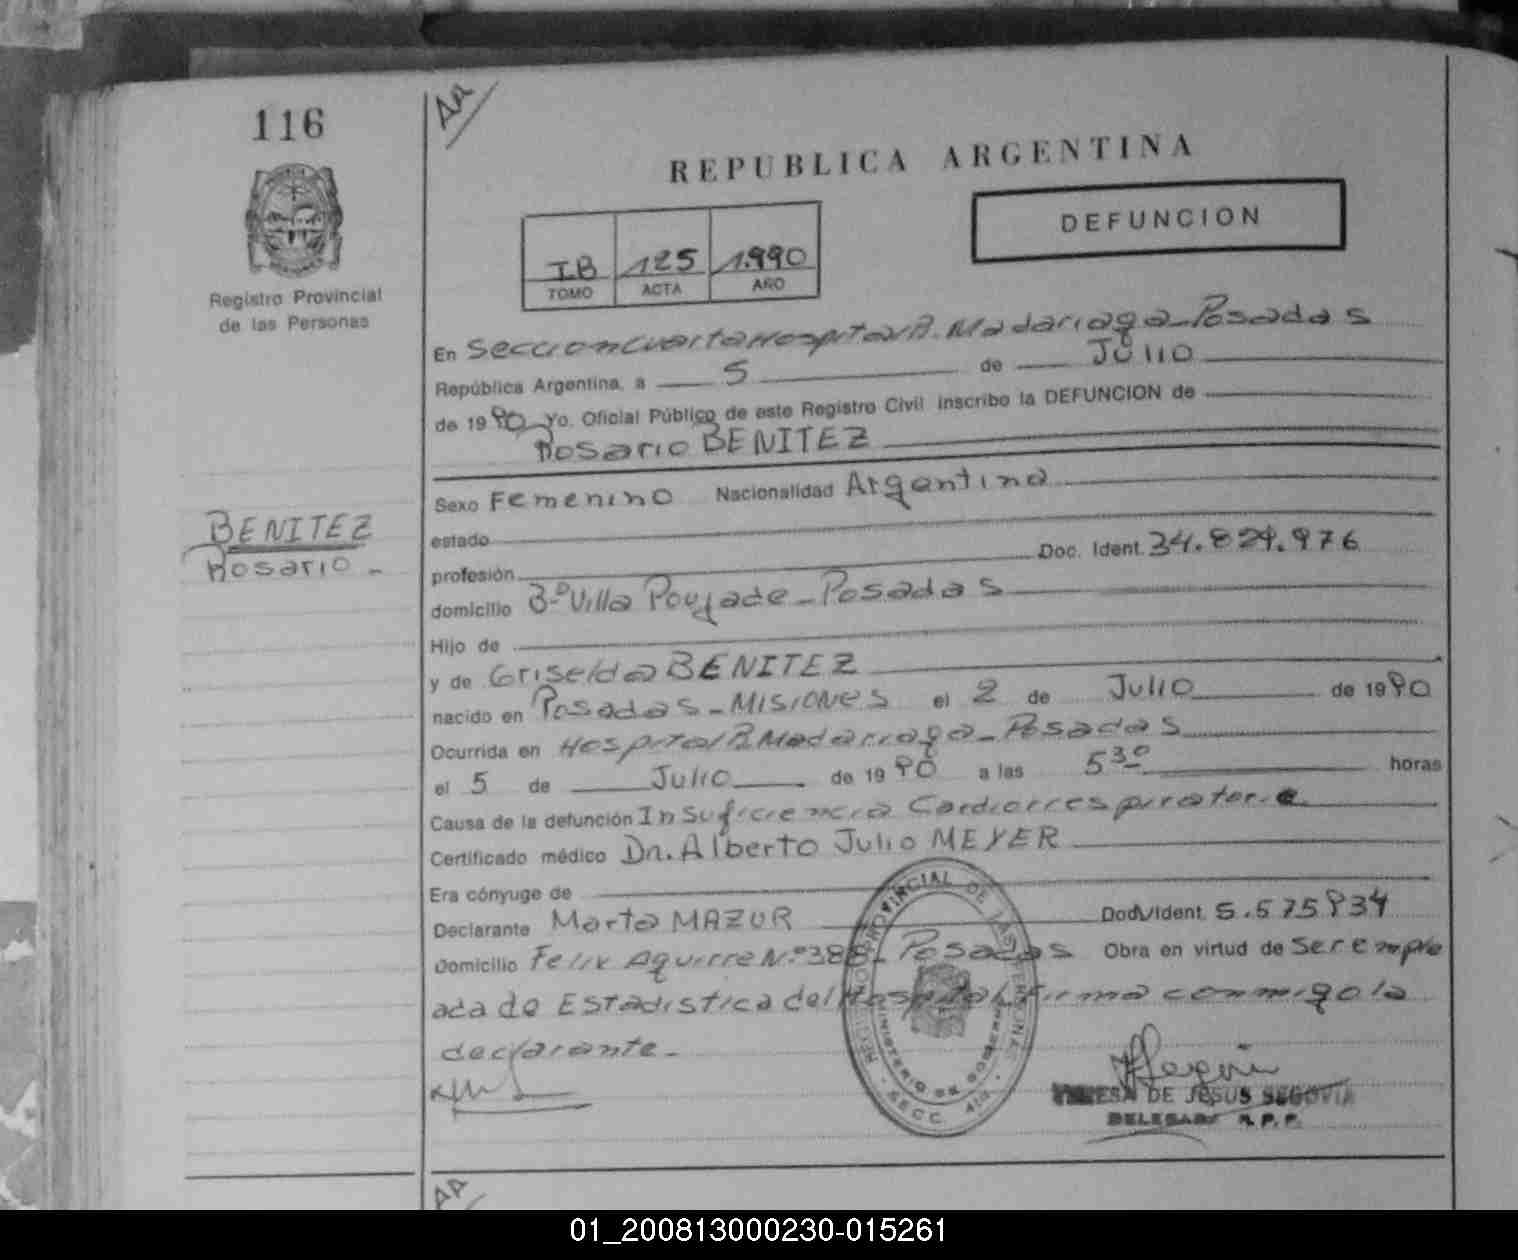 116
AA
REPUBLICA ARGENTINA
DEFUNCION
IB 125 1.990
TOMO ACTA AÑO
Registro Provincial
de las Personas
En Seccion Cuarta Hospital R. Madariaga - Posadas
República Argentina, a 5 de Julio
de 1990 Yo, Oficial Público de este Registro Civil inscribo la DEFUNCION de
Rosario BENITEZ
Sexo Femenino Nacionalidad Argentina
BENITEZ
Rosario -
estado
profesión Doc. Ident. 34.829.976
domicilio Bº Villa Poujade - Posadas
Hijo de
y de Griselda BENITEZ
nacido en Posadas - MISIONES el 2 de Julio de 1990
Ocurrida en Hospital R. Madariaga - Posadas
el 5 de Julio de 1990 a las 5 30 horas
Causa de la defunción Insuficiencia Cardiorrespiratoria
Certificado médico Dn. Alberto Julio MEYER
Era cónyuge de
Declarante Marta MAZUR Doc. Ident. 5.575.934
Domicilio Felix Aguirre N.º 388 - Posadas Obra en virtud de ser emple
ada de Estadistica del Hospital. Firma conmigo la
declarante. -
REGISTRO PROVINCIAL DE LAS PERSONAS
MINISTERIO DE GOBIERNO
SECC. 4ta
TERESA DE JESUS SEGOVIA
DELEGADA R. P. P.
AA
01_200813000230-015261